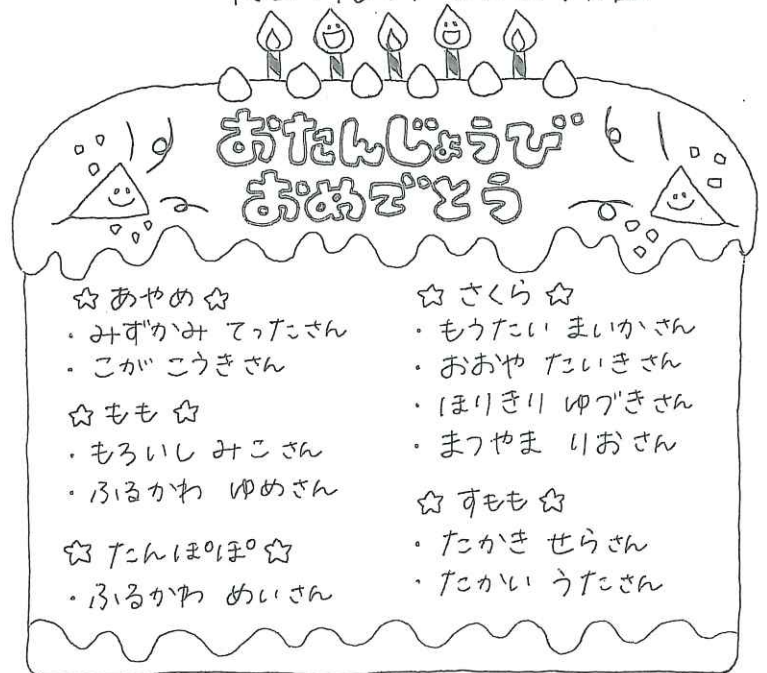 おたんじょうび
おめでとう
☆ あやめ ☆
・みずかみ てったさん
・こが こうきさん
☆ もも ☆
・もろいし みこさん
・ふるかわ ゆめさん
☆ たんぽぽ ☆
・ふるかわ めいさん
☆ さくら ☆
・もうたい まいかさん
・おおや たいきさん
・ほりきり ゆづきさん
・まつやま りおさん
☆ すもも ☆
・たかき せらさん
・たかい うたさん